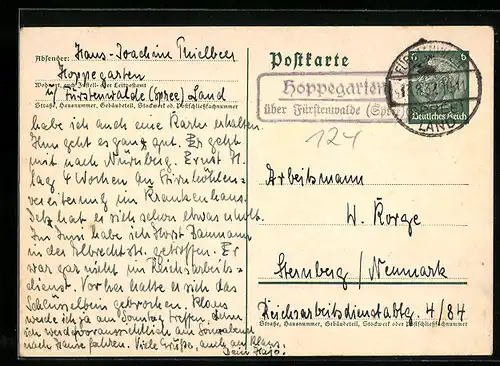 Absender: Hans-Joachim Thielbeer
Wohnort, auch Zustell- oder Leitpostamt
Hoppegarten
ü/ Fürstenwalde (Spree) Land
Straße, Hausnummer, Gebäudeteil, Stockwerk od. Postschließfachnummer
habe ich auch eine Karte erhalten.
Ihm geht es ganz gut. Er geht
mit nach Nürnberg. Ernst H.
lag 4 Wochen an Stirnhöhlen=
vereiterung im Krankenhaus.
Jetzt hat er sich schon etwas erholt.
Im Juni habe ich Horst Baumann
in der Albrechtstr. getroffen. Er
war gar nicht im Reichsarbeits=
dienst. Vorher hatte er sich das
Schlüsselbein gebrochen. Klaus
werde ich am Sonntag treffen, denn
ich werde voraussichtlich am Sonnabend
nach Hause fahren. Viele Grüße, auch an Klaus,
Dein Hajo.
Postkarte
6
Deutsches Reich
LAND
Hoppegarten
über Fürstenwalde (Spree)
124
Arbeitsmann
W. Korge
Sternberg/Neumark
Reichsarbeitsdienstabtlg. 4/84
Straße, Hausnummer, Gebäudeteil, Stockwerk oder Postschließfachnummer